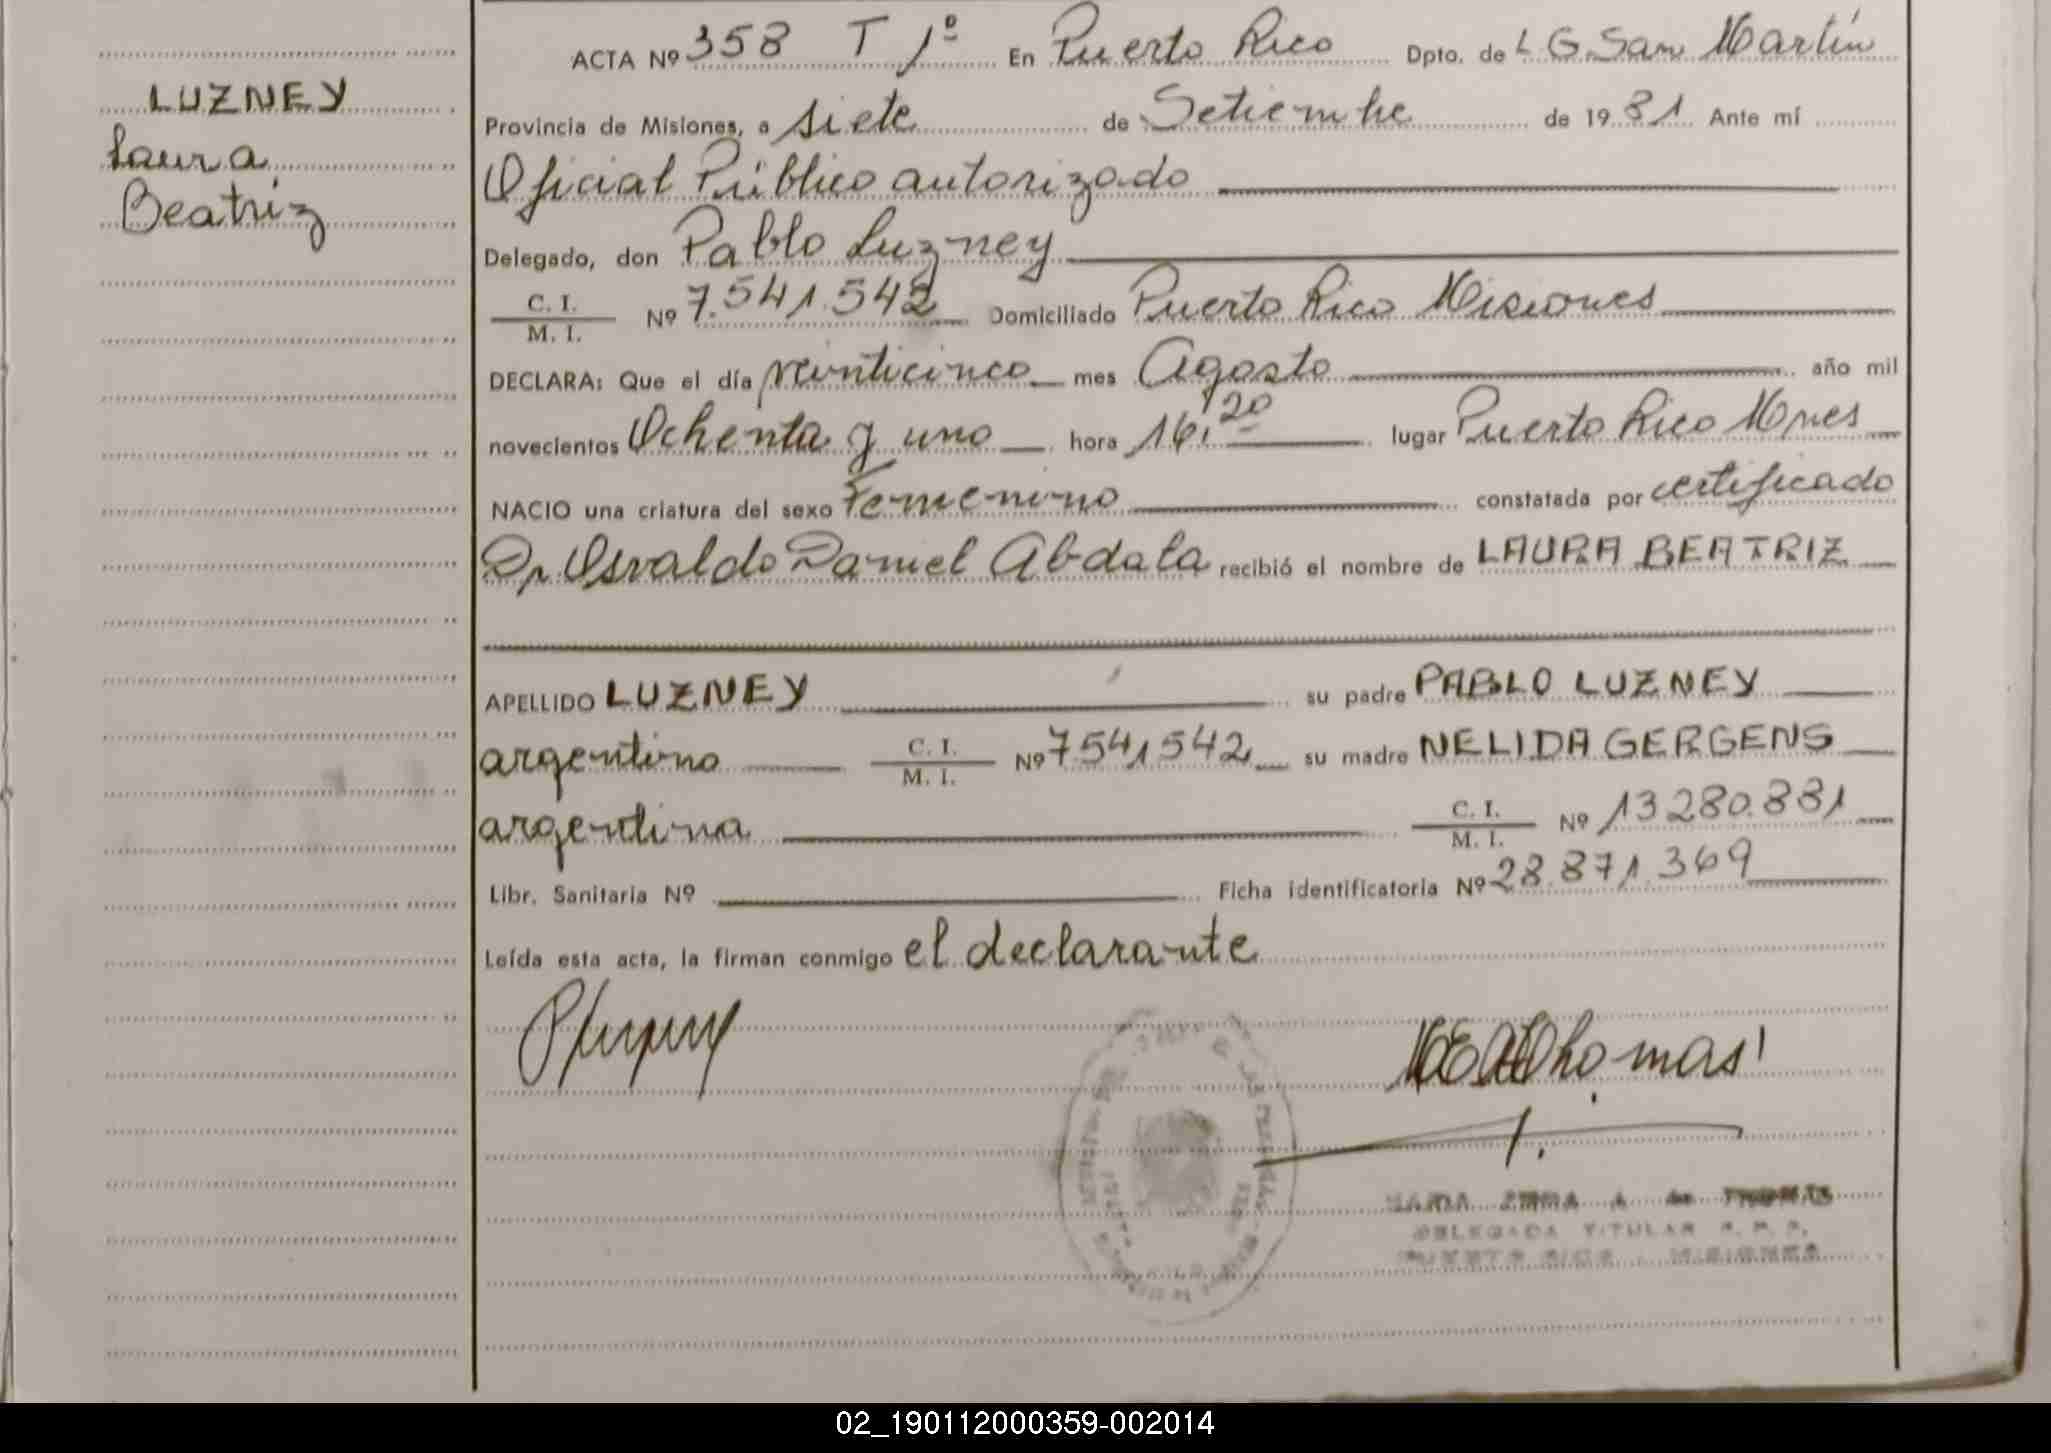 LUZNEY
Laura
Beatriz
ACTA Nº 358 T 1º En Puerto Rico Dpto. de L G. San Martín
Provincia de Misiones, a siete de Setiembre de 1981 Ante mí
Oficial Público autorizado
Delegado, don Pablo Luzney
C. I.
M. I. Nº 7.541.542 Domiciliado Puerto Rico Misiones
DECLARA: Que el día veinticinco mes Agosto año mil
novecientos Ochenta y uno hora 16,20 lugar Puerto Rico Mnes
NACIO una criatura del sexo Femenino constatada por certificado
Dr Osvaldo Daniel Abdala recibió el nombre de LAURA BEATRIZ
APELLIDO LUZNEY su padre PABLO LUZNEY
argentino C. I.
M. I. Nº 7541542 su madre NELIDA GERGENS
argentina C. I.
M. I. Nº 13280.881
Libr. Sanitaria Nº Ficha identificatoria Nº 28.871.369
Leída esta acta, la firman conmigo el declarante
MARIA A de
DELEGADA TITULAR R. P. P.
PUERTO RICO - MISIONES
02_190112000359-002014